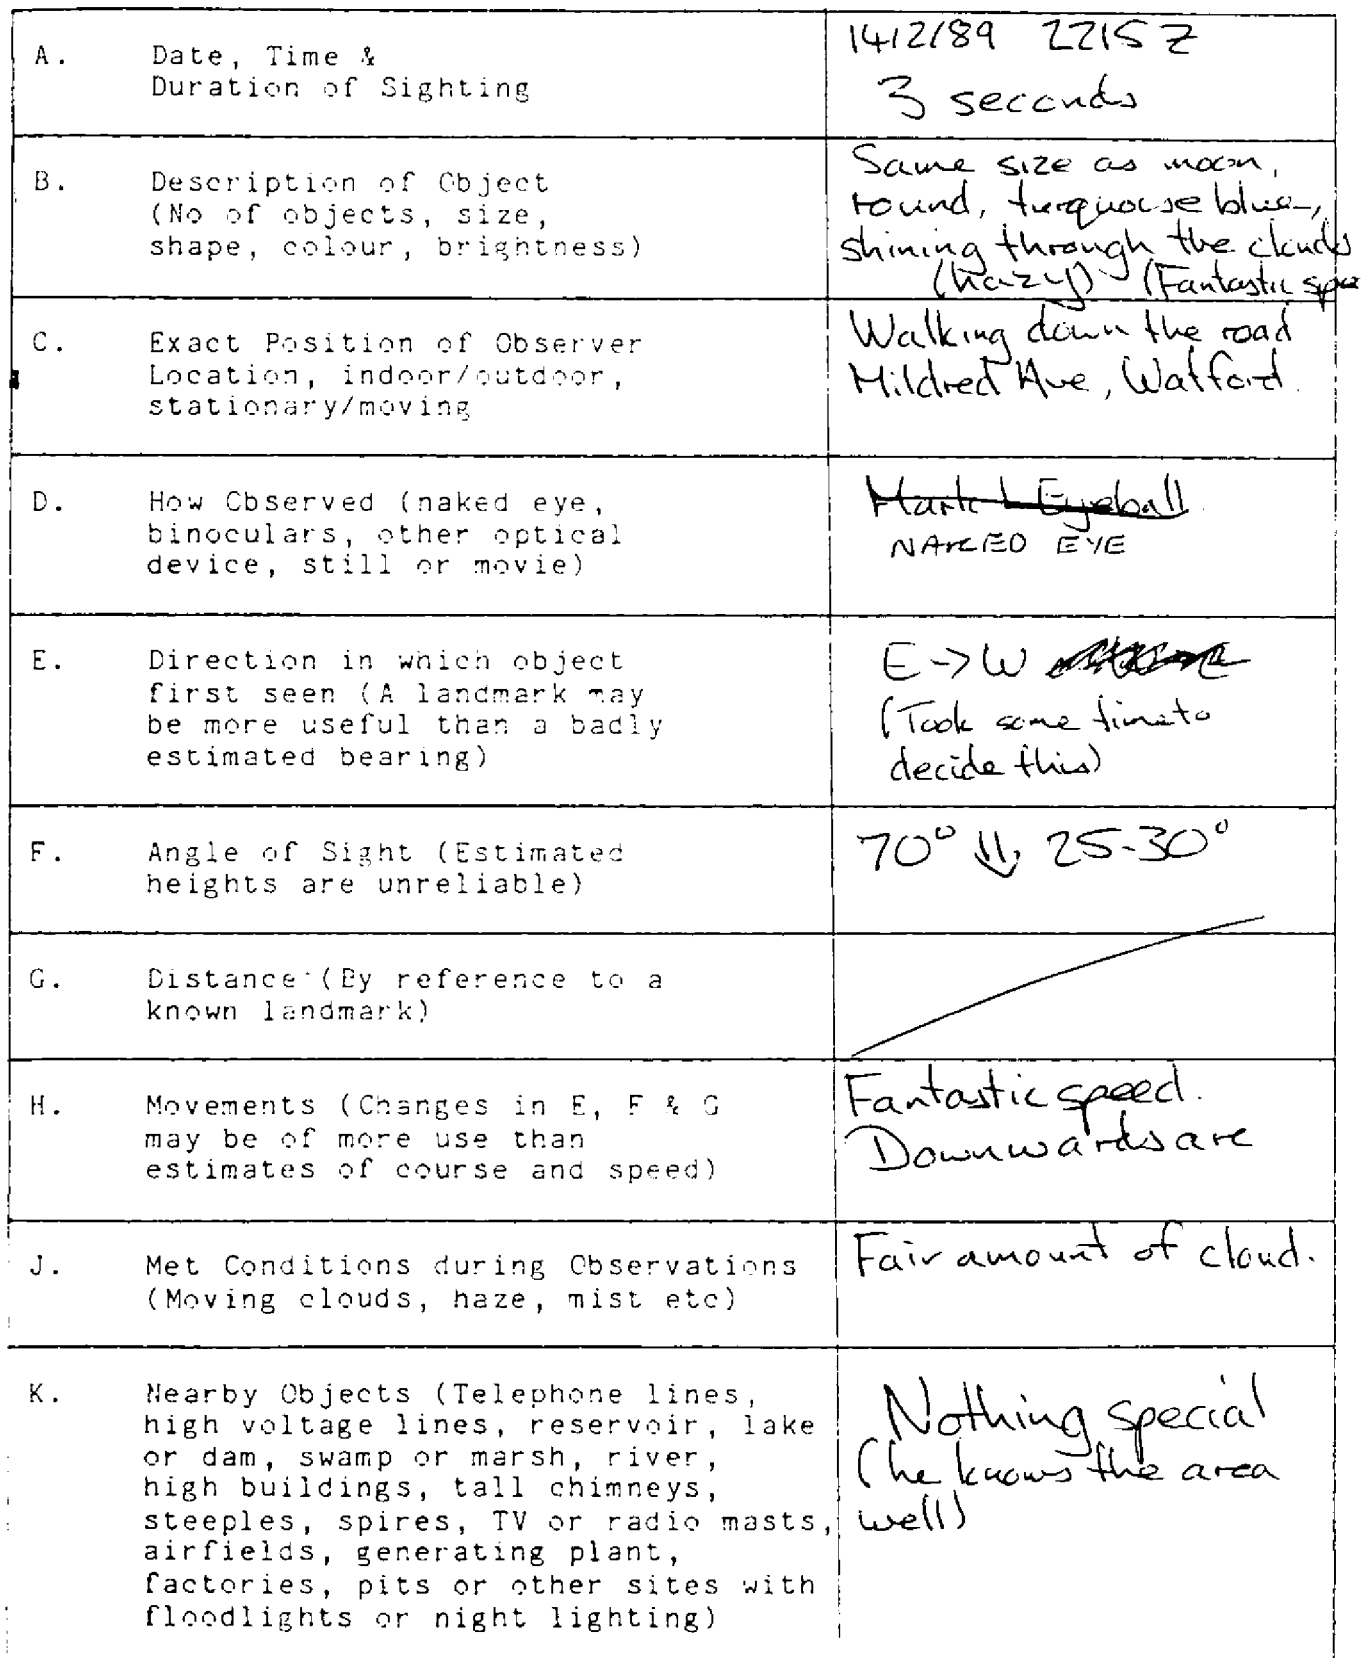 A. Date, Time &
Duration of Sighting
1412189 2215Z
3 seconds
B. Description of Object
(No of objects, size,
shape, colour, brightness)
Same size as moon,
round, turquoise blue,
shining through the clouds
(hazy) (Fantastic
C. Exact Position of Observer
Location, indoor/outdoor,
stationary/moving
Walking down the road
Mildred Ave, Watford.
D. How Observed (naked eye,
binoculars, other optical
device, still or movie)
Mark 1 Eyeball
NAKED EYE
E. Direction in which object
first seen (A landmark may
be more useful than a badly
estimated bearing)
E->W
(Took some time to
decide this)
F. Angle of Sight (Estimated
heights are unreliable)
70° ⇓ 25-30°
G. Distance (By reference to a
known landmark)
H. Movements (Changes in E, F & G
may be of more use than
estimates of course and speed)
Fantastic speed.
Downwards arc
J. Met Conditions during Observations
(Moving clouds, haze, mist etc)
Fair amount of cloud.
K. Nearby Objects (Telephone lines,
high voltage lines, reservoir, lake
or dam, swamp or marsh, river,
high buildings, tall chimneys,
steeples, spires, TV or radio masts,
airfields, generating plant,
factories, pits or other sites with
floodlights or night lighting)
Nothing special
(he knows the area
well)